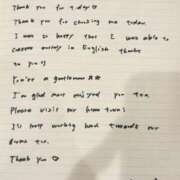 Thank you for today☺
Thank you for choosing me today.
I was so happy that I was able to
converse in English thanks
to you☺
You're a gentleman★★
I'm glad you enjoyed you too.
Please visit our home towns
Let's keep working hard towards our
dreams too.
Thank you ☺